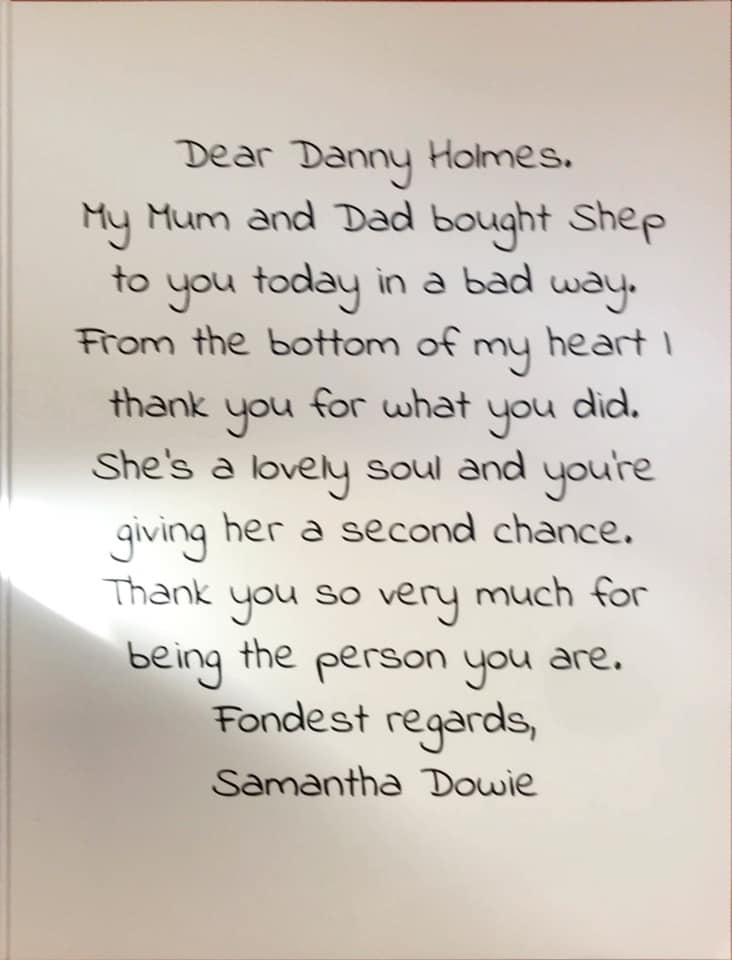 Dear Danny Holmes.
My Mum and Dad bought Shep
to you today in a bad way.
From the bottom of my heart I
thank you for what you did.
She's a lovely soul and you're
giving her a second chance.
Thank you so very much for
being the person you are.
Fondest regards,
Samantha Dowie